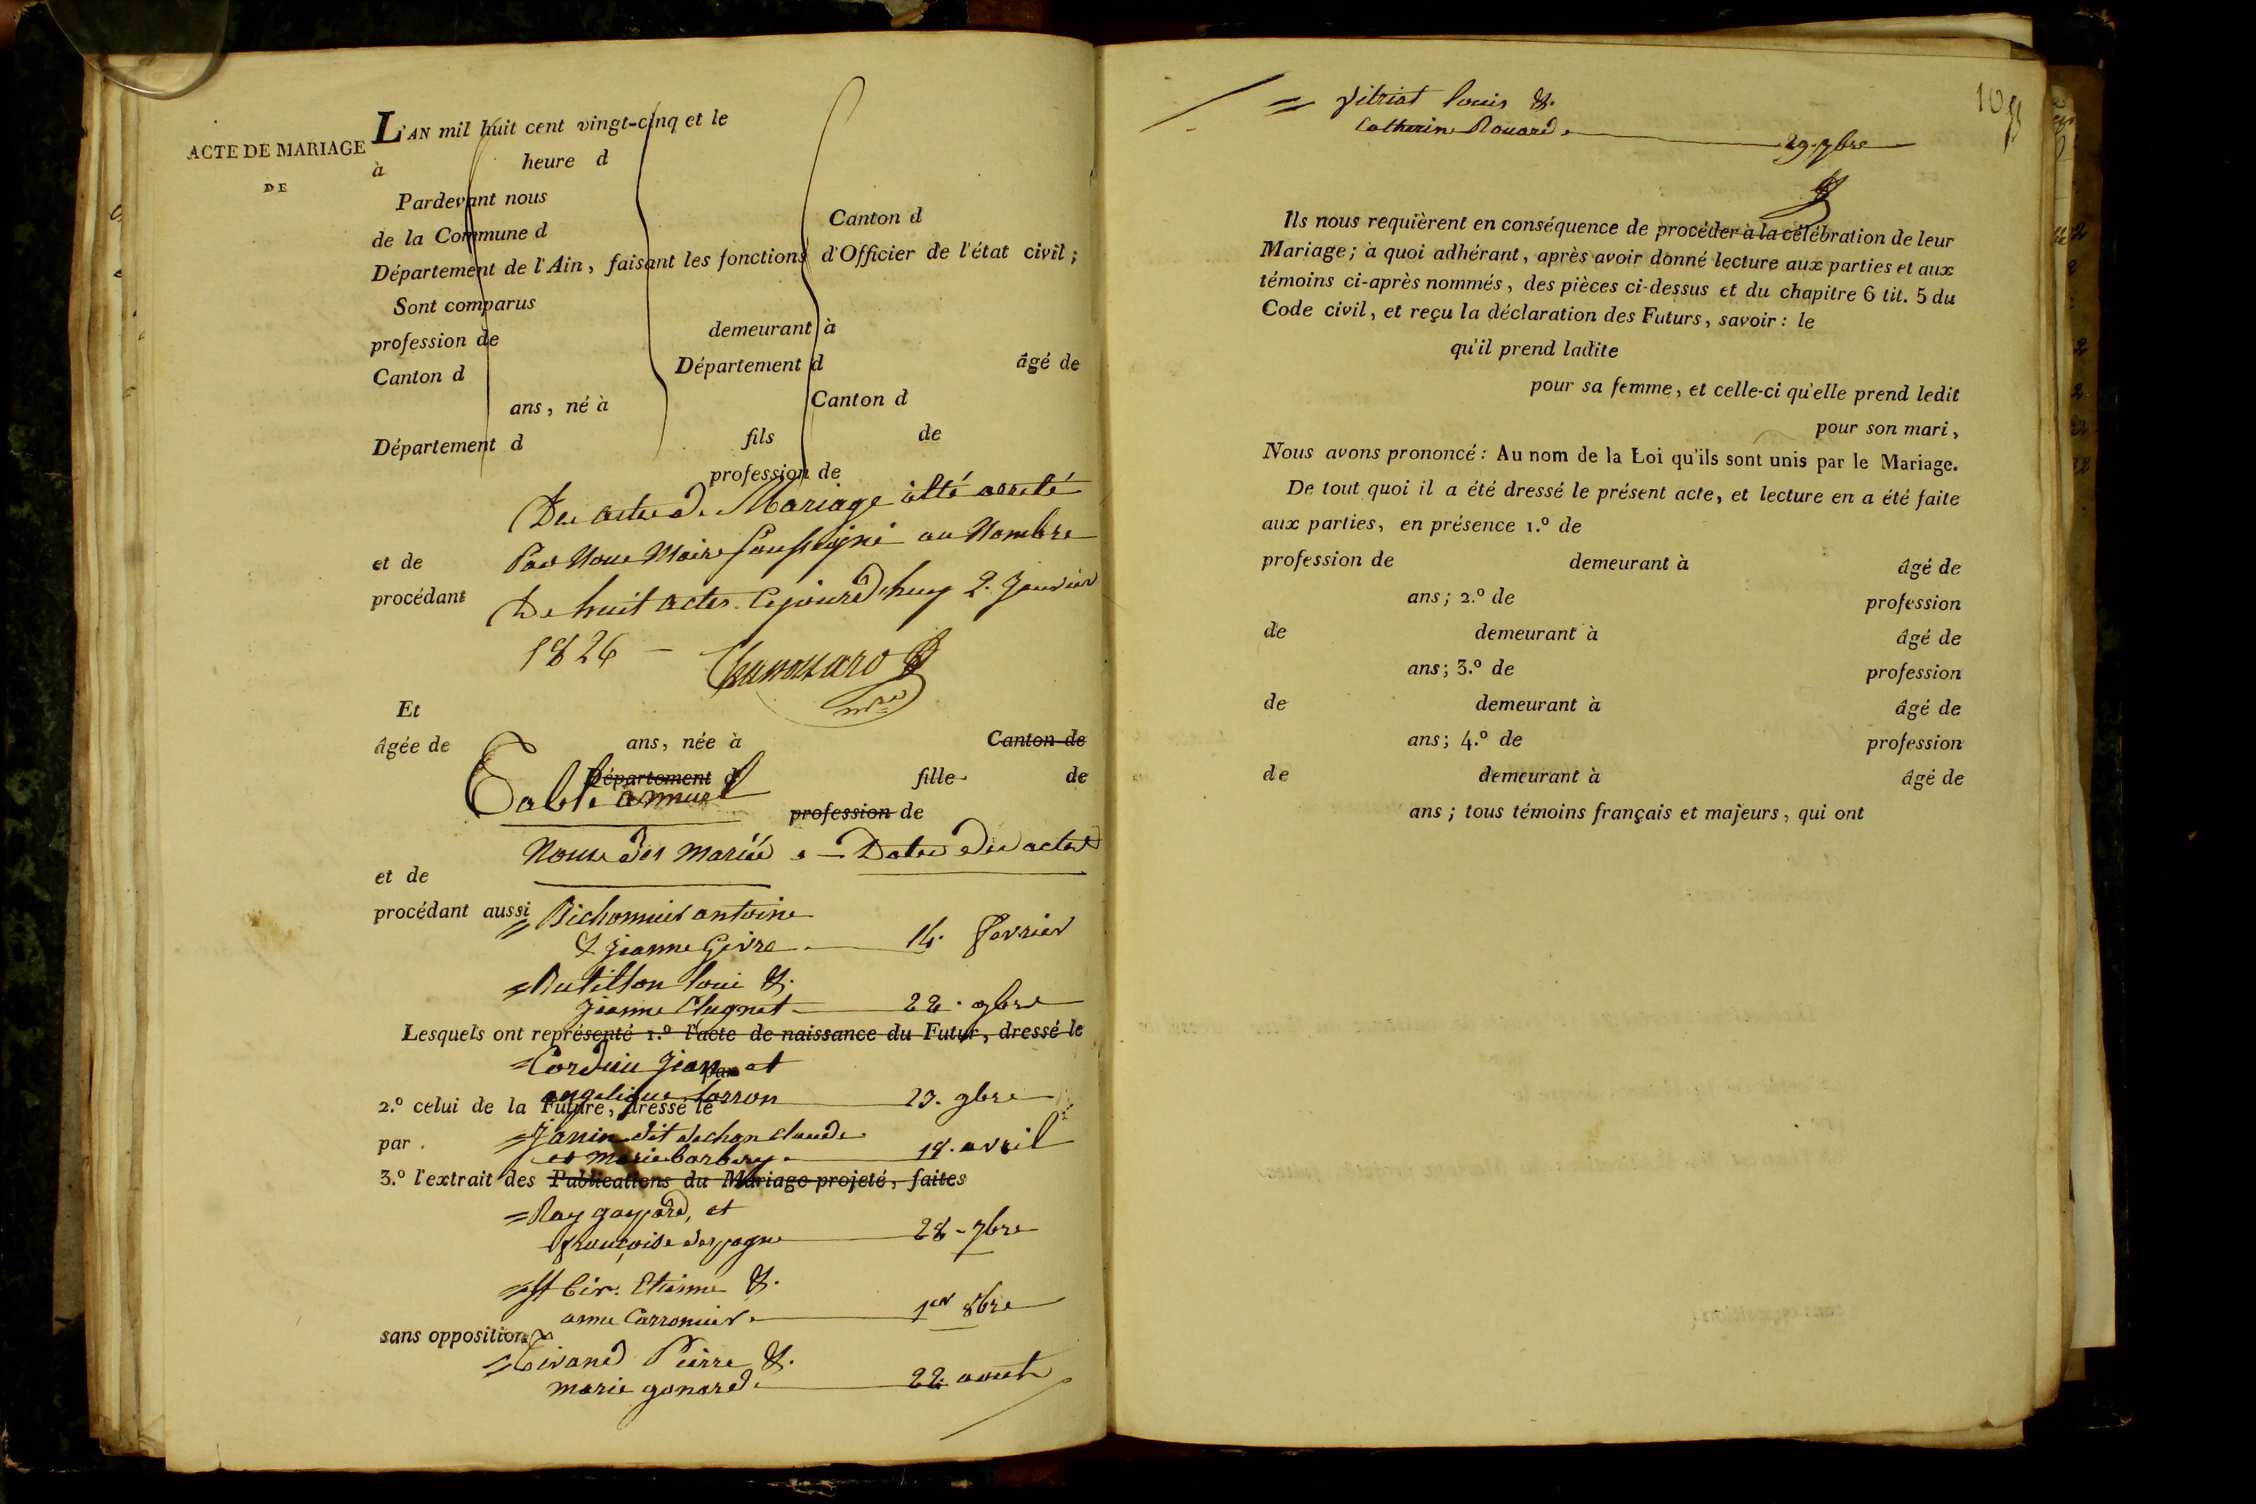 ACTE DE MARIAGE
DE
L'AN mil huit cent vingt-cinq et le
à heure d
Pardevant nous
de la Commune d Canton d
Département de l'Ain, faisant les fonctions d'Officier de l'état civil ;
Sont comparus
profession de demeurant à
Canton d Département d âgé de
ans, né à Canton d
Département d fils de
profession de
Des actes de Mariage a été arreté
et de
Par Nous Maire Soussigné au Nombre
procédant
De huit actes. Cejourd'huy 2. Janvier
1826 —
mre
Et
âgée de ans, née à Canton de
Département d fille de
Table annuel
profession de
Noms des mariés — Dates des actes
et de
procédant aussi
= Bichonnier antoine
& Jeanne Givre 14. février
= Butillon loui &.
Jeanne Clugnet 22. 9bre
Lesquels ont représenté 1.º l'acte de naissance du Futur, dressé le
= Cordier Jean et
par
angelique Lorron 23. 9bre
2.º celui de la Future, dressé le
= Janin dit dechan claude
par
et marie barbery 18. avril
3.º l'extrait des Publications du Mariage projeté, faites
= Ray gaspard, et
françoise despagne 28 - 7bre
Etienne &.
anne Carronier 1er 8bre
sans opposition ;
= Tirand Pierre &.
marie gonard 22. aout
109
= Vitriat louis &.
Catherine Rouard 29. 7bre
Ils nous requièrent en conséquence de procéder à la célébration de leur
Mariage ; à quoi adhérant, après avoir donné lecture aux parties et aux
témoins ci-après nommés, des pièces ci-dessus et du chapitre 6 tit. 5 du
Code civil, et reçu la déclaration des Futurs, savoir : le
qu'il prend ladite
pour sa femme, et celle-ci qu'elle prend ledit
pour son mari,
Nous avons prononcé : Au nom de la Loi qu'ils sont unis par le Mariage.
De tout quoi il a été dressé le présent acte, et lecture en a été faite
aux parties, en présence 1.º de
profession de demeurant à âgé de
ans ; 2.º de profession
de demeurant à âgé de
ans ; 3.º de profession
de demeurant à âgé de
ans ; 4.º de profession
de demeurant à âgé de
ans ; tous témoins français et majeurs, qui ont